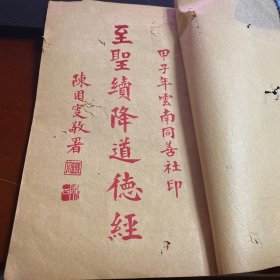 甲子年雲南同善社印
至聖續降道德經
陳因叟敬署